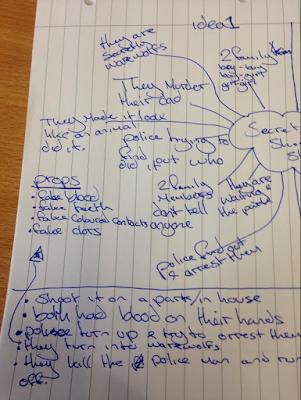 idea 1
they are
secretly
warewolves
2 family
boy-boy
boy-girl
girl-girl
They Murder
their dad
They Made it look
like an animal
did it.
police trying to
find out who
did it
Secret
Sho
S
props
• fake blood
• fake teeth
• fake coloured contacts
• fake clots
2 family
Members
can't tell
anyone
they are
waiting
the park
police find out
& arrest them
• Shoot it on a park/in house
• both had blood on their hands
• police turn up & try to arrest them
• they turn into warewolves
• they kill the police man and run
off.